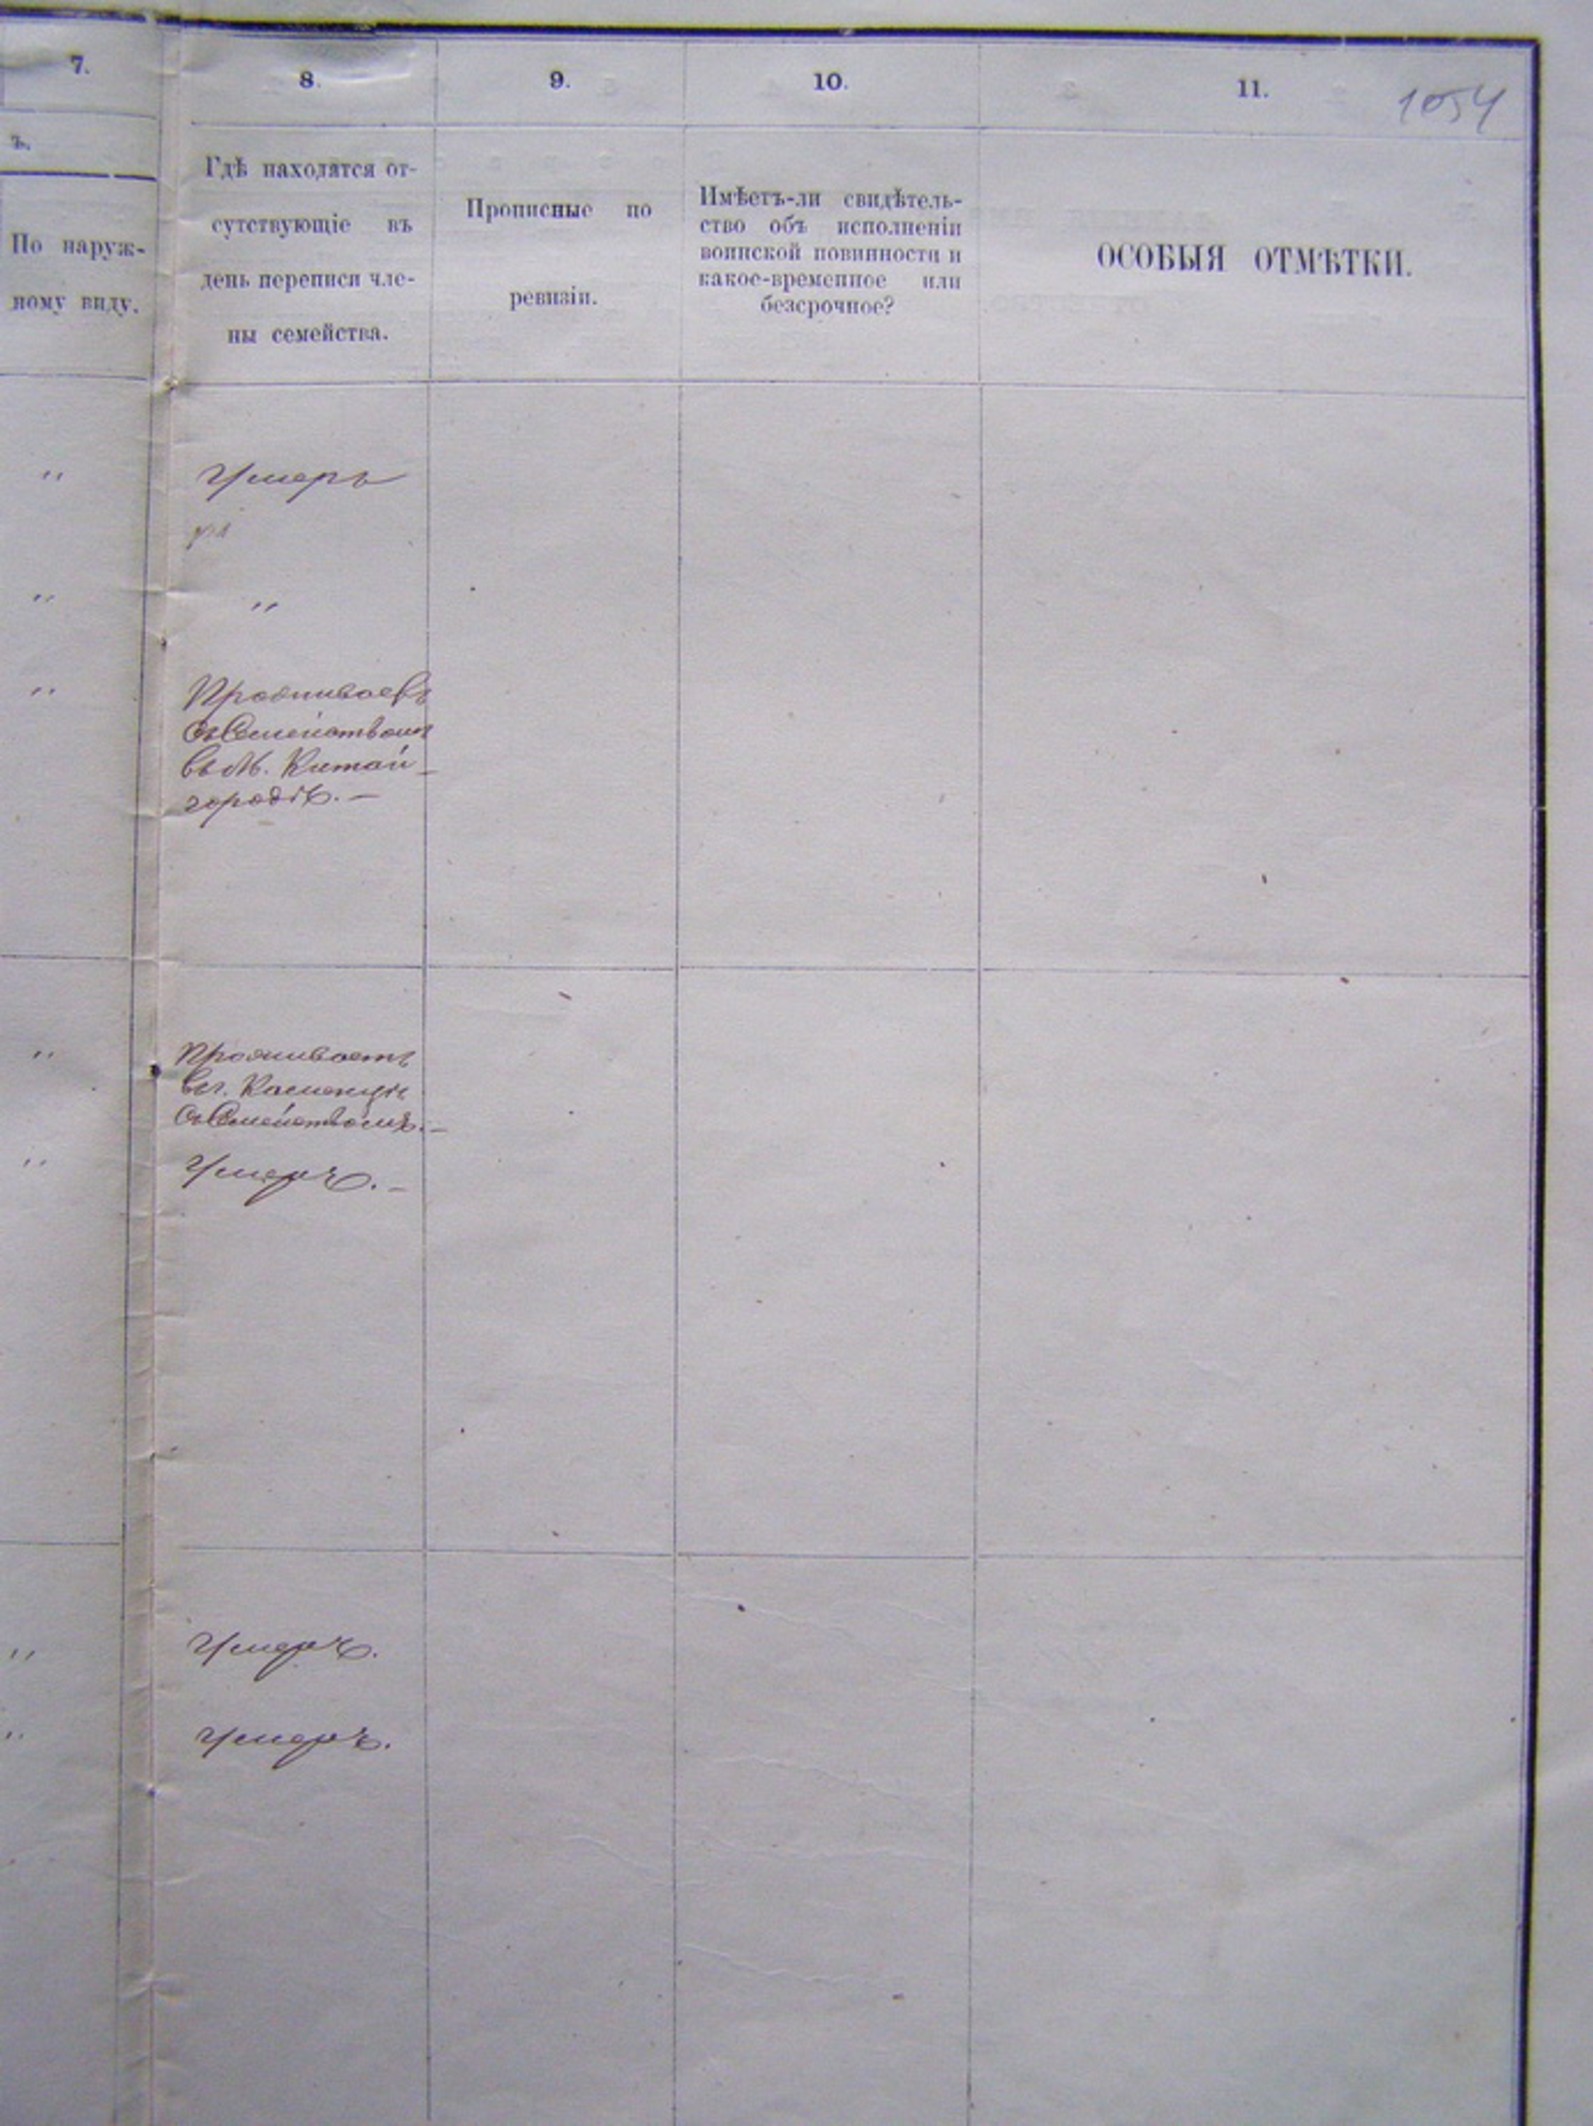 7.
8.
9.
10.
11.
1054
ъ.
По наруж-
ному виду.
Гдѣ находятся от-
сутствующіе въ
день переписи чле-
ны семейства.
Прописные по
ревизіи.
Имѣетъ-ли свидѣтель-
ство объ исполненіи
воинской повинности и
какое-временное или
безсрочное?
ОСОБЫЯ ОТМѢТКИ.
" Умеръ
" "
" Проживаетъ
съ Семействомъ
въ М. Китай-
городѣ. —
" Проживаетъ
въ г. Каменцѣ
съ Семействомъ. —
" Умеръ. —
" Умеръ.
" Умеръ.